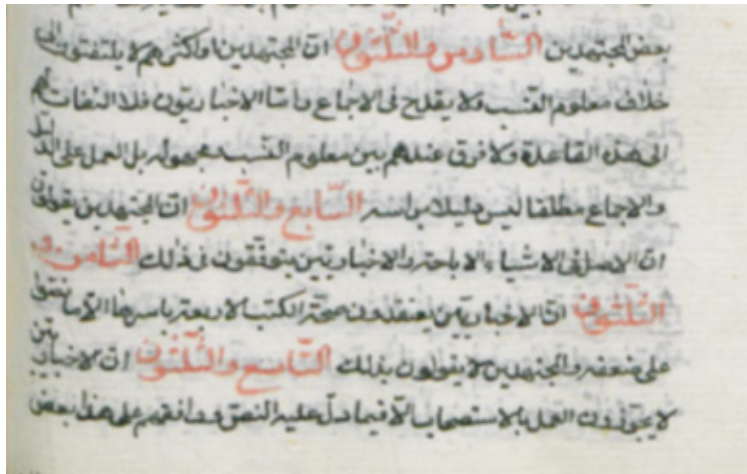 بعض المجتهدين السادس والثلثون ان المجتهدين او اكثرهم لا يلتفتون الى
خلاف معلوم النسب ولا يقدح فى الاجماع واما الاخباريون فلا التفات لهم
الى هذه القاعدة ولا فرق عندهم بين معلوم النسب ومجهوله بل العمل على الدليل
والاجماع مطلقا ليس دليلا براسه السابع والثلثون ان المجتهدين يقولون
ان الاصل فى الاشياء الاباحة والاخباريين يتوقفون فى ذلك الثامن و
الثلثون ان الاخباريين يعتقدون صحة الكتب الاربعة باسرها الا ما نص
على ضعفه والمجتهدين لا يقولون بذلك التاسع والثلثون ان الاخباريين
لا يجوزون العمل بالاستصحاب الا فيما دل عليه النص ووافقهم على هذا بعض